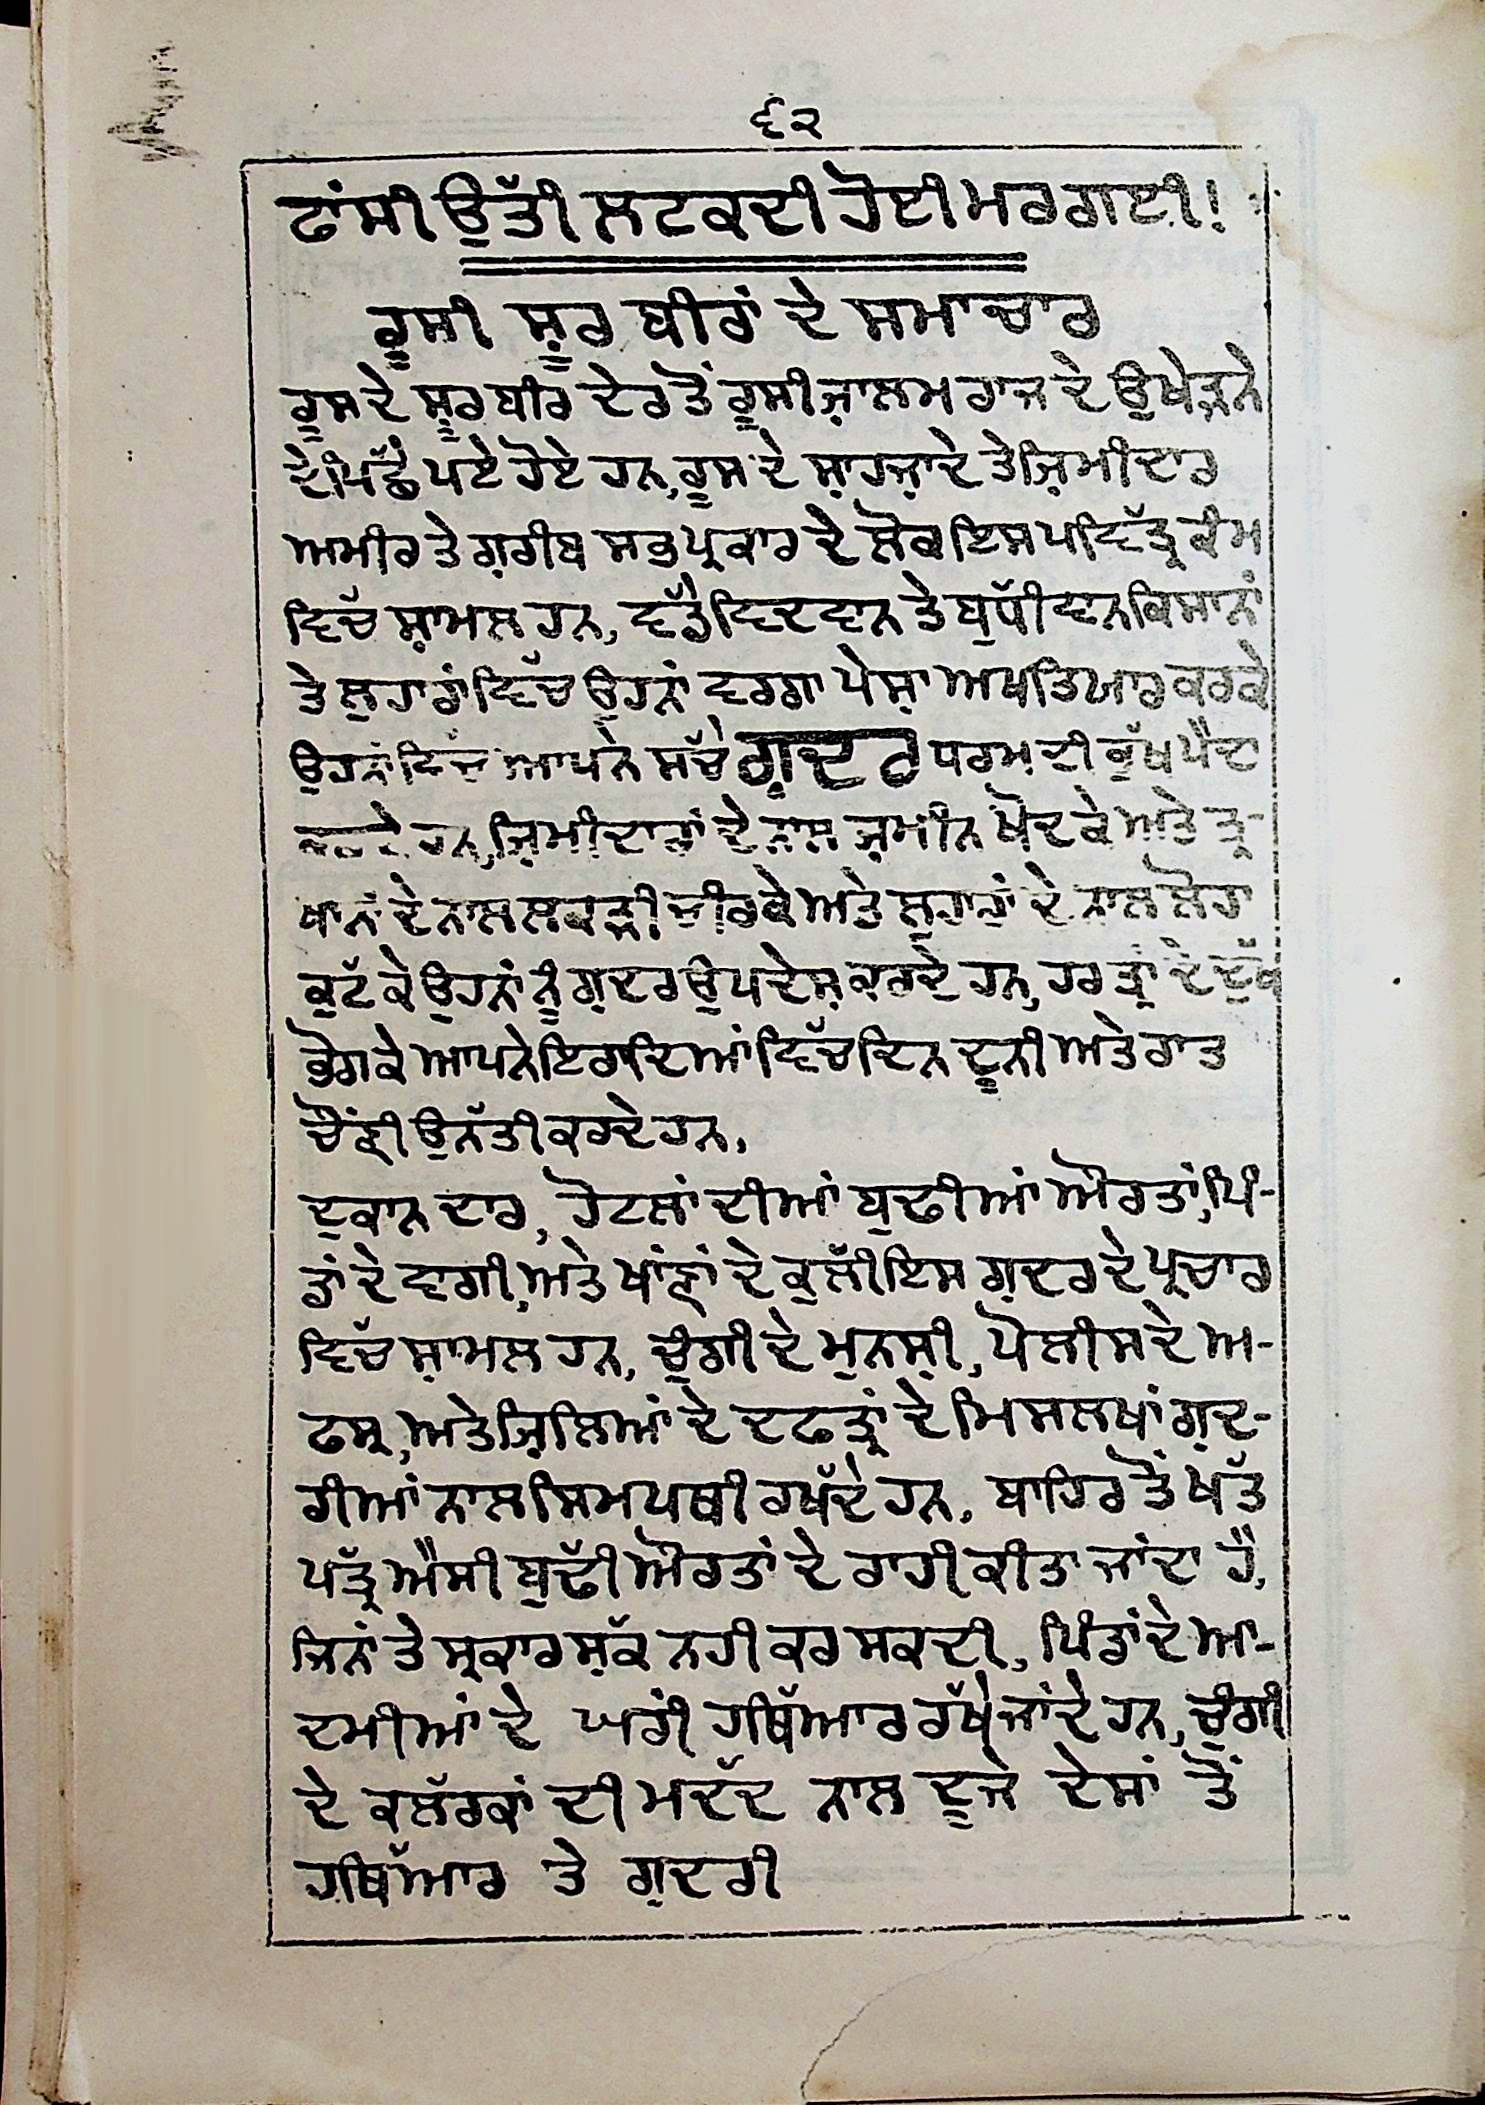 ੬੨
ਫਾਂਸੀ ਉੱਤੀ ਲਟਕਦੀ ਹੋਈ ਮਰ ਗਈ!
ਰੂਸੀ ਸ਼ੂਰ ਬੀਰਾਂ ਦੇ ਸਮਾਚਾਰ
ਰੂਸ ਦੇ ਸ਼ੂਰ ਬੀਰ ਦੇਰ ਤੋਂ ਰੂਸੀ ਜ਼ਾਲਮ ਰਾਜ ਦੇ ਉਖੇੜਨੇ
ਦੇ ਪਿੱਛੇ ਪਏ ਹੋਏ ਹਨ, ਰੂਸ ਦੇ ਸ਼ਾਹਜ਼ਾਦੇ ਤੇ ਜ਼ਿਮੀਦਾਰ
ਅਮੀਰ ਤੇ ਗ਼ਰੀਬ ਸਭ ਪ੍ਰਕਾਰ ਦੇ ਲੋਕ ਇਸ ਪਵਿੱਤ੍ਰ ਕੰਮ
ਵਿੱਚ ਸ਼ਾਮਲ ਹਨ, ਵੱਡੇ ਵਿਦਵਾਨ ਤੇ ਬੁਧੀਵਾਨ ਕਿਸਾਨਾਂ
ਤੇ ਲੁਹਾਰਾਂ ਵਿੱਚ ਉਹਨਾਂ ਵਰਗਾ ਪੇਸ਼ਾ ਅਖਤਿਆਰ ਕਰਕੇ
ਉਹਨਾਂ ਵਿੱਚ ਆਪਨੇ ਸੱਚੇ ਗ਼ਦਰ ਧਰਮ ਦੀ ਭੁੱਖ ਪੈਦਾ
ਕਰਦੇ ਹਨ, ਜ਼ਿਮੀਦਾਰਾਂ ਦੇ ਨਾਲ ਜ਼ਮੀਨ ਖੋਦ ਕੇ ਅਤੇ ਤ੍ਰ-
ਖਾਨਾਂ ਦੇ ਨਾਲ ਲਕੜੀ ਚੀਰਕੇ ਅਤੇ ਲੁਹਾਰਾਂ ਦੇ ਨਾਲ ਲੋਹਾ
ਕੁੱਟ ਕੇ ਉਹਨਾਂ ਨੂੰ ਗ਼ਦਰ ਉਪਦੇਸ਼ ਕਰਦੇ ਹਨ, ਹਰ ਤ੍ਰਾਂ ਦੇ ਦੁੱਖ
ਭੋਗ ਕੇ ਆਪਨੇ ਇਰਾਦਿਆਂ ਵਿੱਚ ਦਿਨ ਦੂਨੀ ਅਤੇ ਰਾਤ
ਚੌਣੀ ਉਨੱਤੀ ਕਰਦੇ ਹਨ.
ਦੁਕਾਨ ਦਾਰ, ਹੋਟਲਾਂ ਦੀਆਂ ਬੁਢੀਆਂ ਔਰਤਾਂ, ਪਿੰ-
ਡਾਂ ਦੇ ਵਾਗੀ, ਅਤੇ ਖਾਂਣਾਂ ਦੇ ਕੁਲੀ ਇਸ ਗ਼ਦਰ ਦੇ ਪ੍ਰਚਾਰ
ਵਿੱਚ ਸ਼ਾਮਲ ਹਨ, ਚੁੰਗੀ ਦੇ ਮੁਨਸ਼ੀ, ਪੋਲੀਸ ਦੇ ਅ-
ਫਸ੍ਰ, ਅਤੇ ਜ਼ਿਲਿਆਂ ਦੇ ਦਫਤ੍ਰਾਂ ਦੇ ਮਿਸਲਖਾਂ ਗ਼ਦ-
ਰੀਆਂ ਨਾਲ ਸਿਮਪਥੀ ਰਖੱਦੇ ਹਨ. ਬਾਹਿਰ ਤੋਂ ਖੱਤ
ਪੱਤ੍ਰ ਐਸੀ ਬੁਢੀ ਔਰਤਾਂ ਦੇ ਰਾਹੀ ਕੀਤਾ ਜਾਂਦਾ ਹੈ,
ਜਿਨਾਂ ਤੇ ਸ੍ਰਕਾਰ ਸ਼ੱਕ ਨਹੀ ਕਰ ਸਕਦੀ, ਪਿੰਡਾਂ ਦੇ ਆ-
ਦਮੀਆਂ ਦੇ ਘਰੀਂ ਹਥਿੱਆਰ ਰੱਖੇ ਜਾਂਦੇ ਹਨ, ਚੁੰਗੀ
ਦੇ ਕਲੱਰਕਾਂ ਦੀ ਮਦੱਦ ਨਾਲ ਦੂਜੇ ਦੇਸਾਂ ਤੋਂ
ਹਥਿੱਆਰ ਤੇ ਗ਼ਦਰੀ